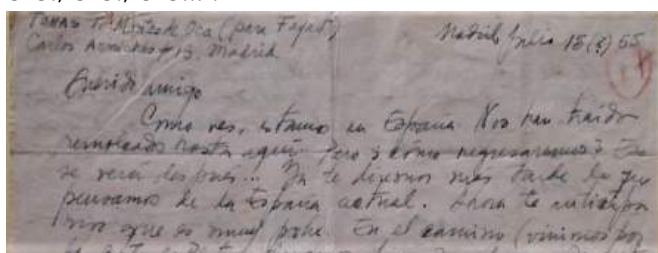 Tomás T. Montes de Oca (para Fayad)
Carlos Arniches 13, Madrid
Madrid Julio 15 (?) 55
Querido amigo
Como ves, estamos en España Nos han traído
remolcados hasta aquí. Pero ¿cómo regresaremos? Eso
se verá después... Ya te diremos más tarde lo que
pensamos de la España actual. Ahora te anticipa
mos que es muy pobre. En el camino (vinimos por